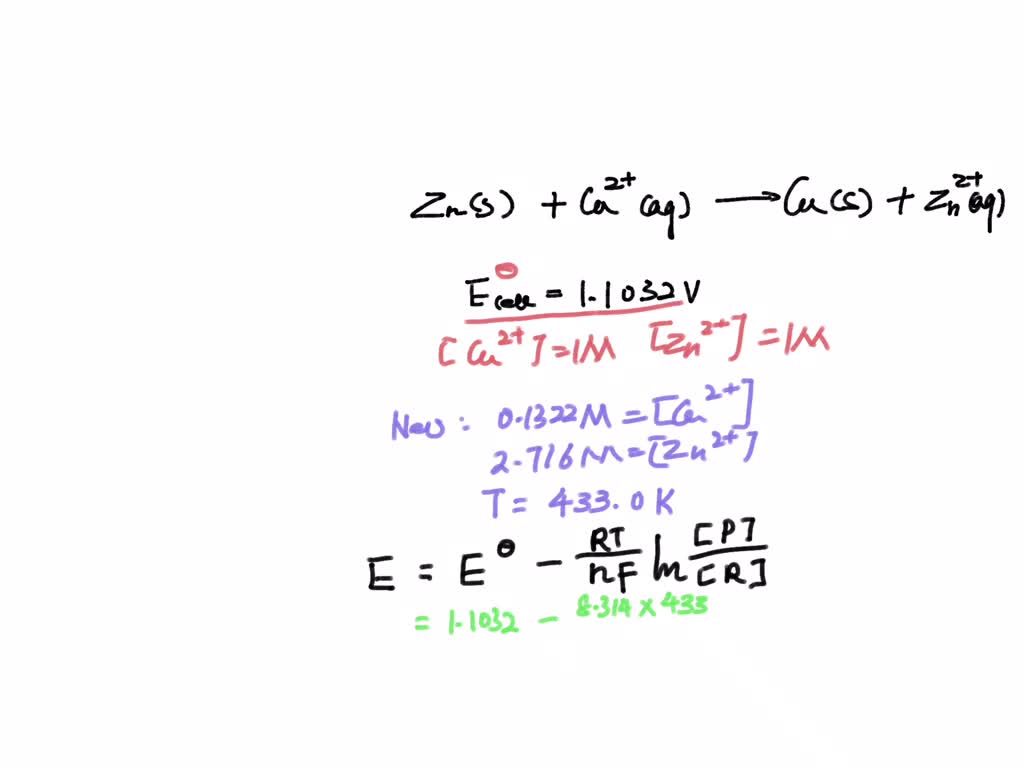 Zn(s) + Cu²⁺(aq) ⟶ Cu(s) + Zn²⁺(aq)
E°cell = 1.1032 V
[Cu²⁺] = 1M [Zn²⁺] = 1M
New : 0.1322M = [Cu²⁺]
2.716M = [Zn²⁺]
T = 433.0 K
E = E° − RT/nF ln [P]/[R]
= 1.1032 − 8.314 × 433